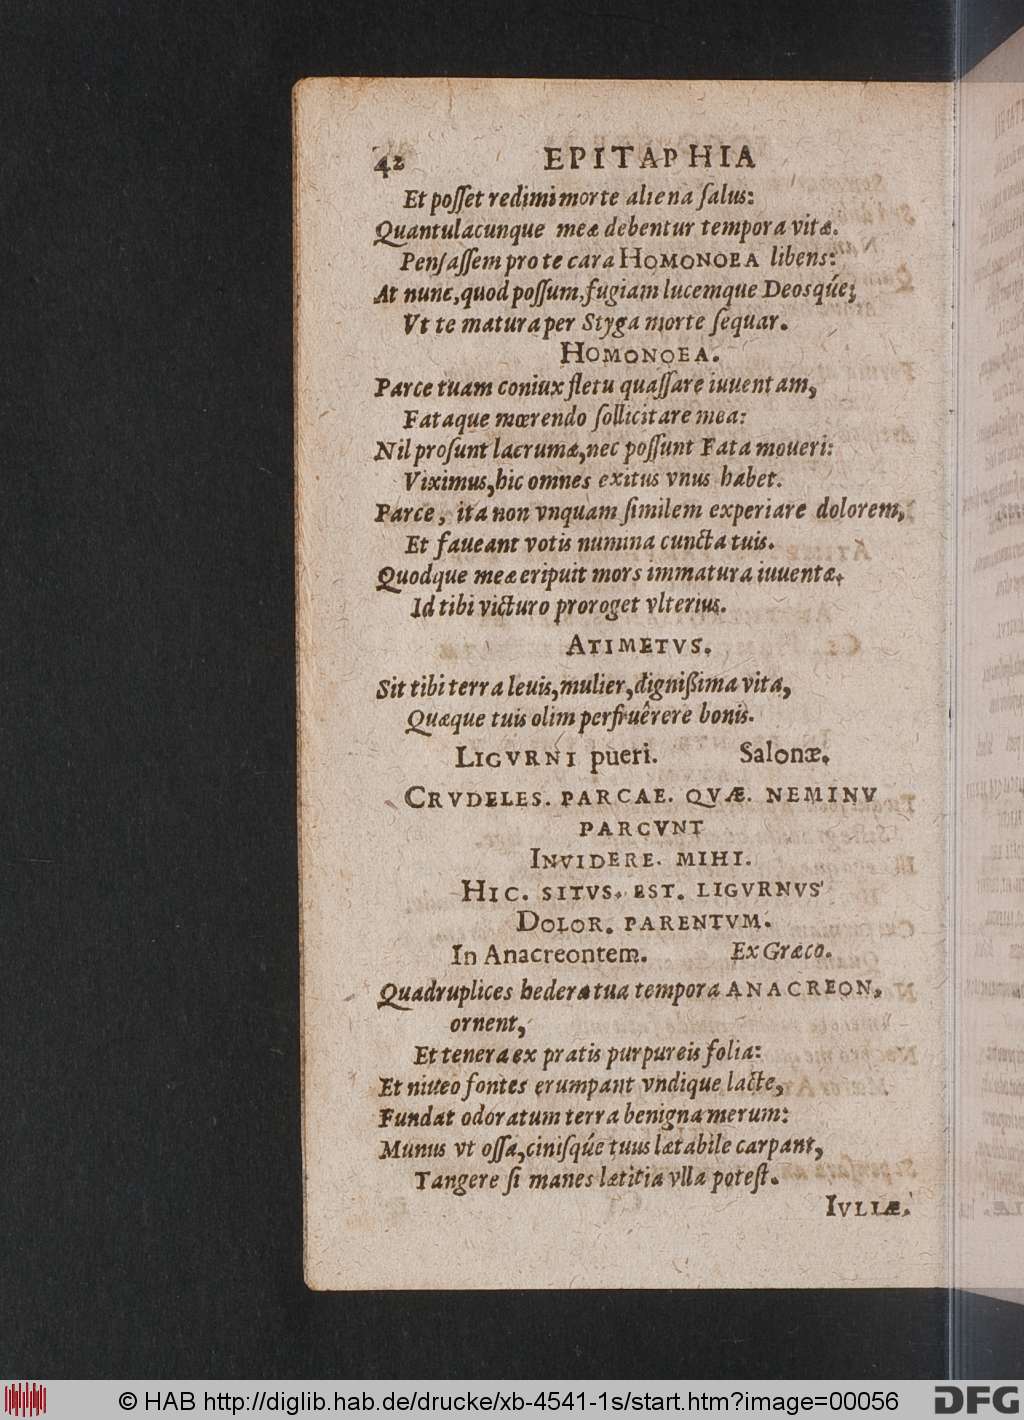 42 EPITAPHIA
Et posset redimi morte aliena salus:
Quantulacunque meæ debentur tempora vitæ.
Pensassem pro te cara HOMONOEA libens:
At nunc, quod possum, fugiam lucemque Deosq́ue;
Vt te matura per Styga morte sequar.
HOMONOEA.
Parce tuam coniux fletu quassare iuuentam,
Fataque mœrendo sollicitare mea:
Nil prosunt lacrumæ, nec possunt Fata moueri:
Viximus, hic omnes exitus vnus habet.
Parce, ita non vnquam similem experiare dolorem,
Et faueant votis numina cuncta tuis.
Quodque meæ eripuit mors immatura iuuentæ.
Id tibi victuro proroget vlterius.
ATIMETVS.
Sit tibi terra leuis, mulier, dignißima vita,
Quæque tuis olim perfruêrere bonis.
LIGVRNI pueri. Salonæ.
CRVDELES. PARCAE. QVÆ. NEMINV
PARCVNT
INVIDERE. MIHI.
HIC. SITVS. EST. LIGVRNVS
DOLOR. PARENTVM.
In Anacreontem. Ex Græco.
Quadruplices hederæ tua tempora ANACREON,
ornent,
Et tenera ex pratis purpureis folia:
Et niueo fontes erumpant vndique lacte,
Fundat odoratum terra benigna merum:
Munus vt ossa, cinisq́ue tuus lætabile carpant,
Tangere si manes lætitia vlla potest.
IVLIÆ.
© HAB http://diglib.hab.de/drucke/xb-4541-1s/start.htm?image=00056
DFG